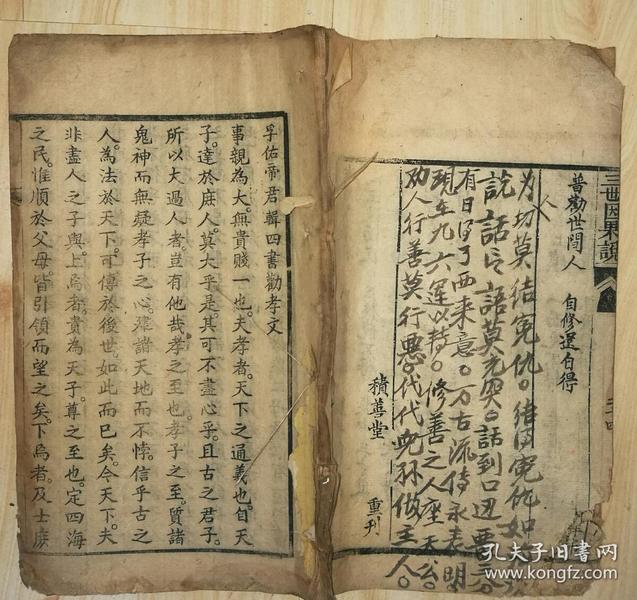 三世因果説
普勸世間人　自修還自得
为切莫结寃仇。结因寃仇如
説話出語莫充突。話到口边要三
有日得了西来意。万古流传永表明
現在九六運以持。修善之人座天台
劝人行善莫行悪。代代兒孫做主人。
積善堂
重刊
孚佑帝君輯四書勸孝文
事親為大。無貴賤一也。夫孝者。天下之通義也。自天
子。達於庶人。莫大乎是。其可不盡心乎。且古之君子。
所以大過人者。豈有他哉。孝之至也。孝子之至。質諸
鬼神而無疑。孝子之心。建諸天地而不悖。信乎古之
人。為法於天下。可傳於後世。如此而已矣。今天下。夫
非盡人之子與。上焉者。貴為天子。尊之至也。定四海
之民。惟順於父母。皆引領而望之矣。下焉者。及士庶
孔夫子旧书网
www.kongfz.com